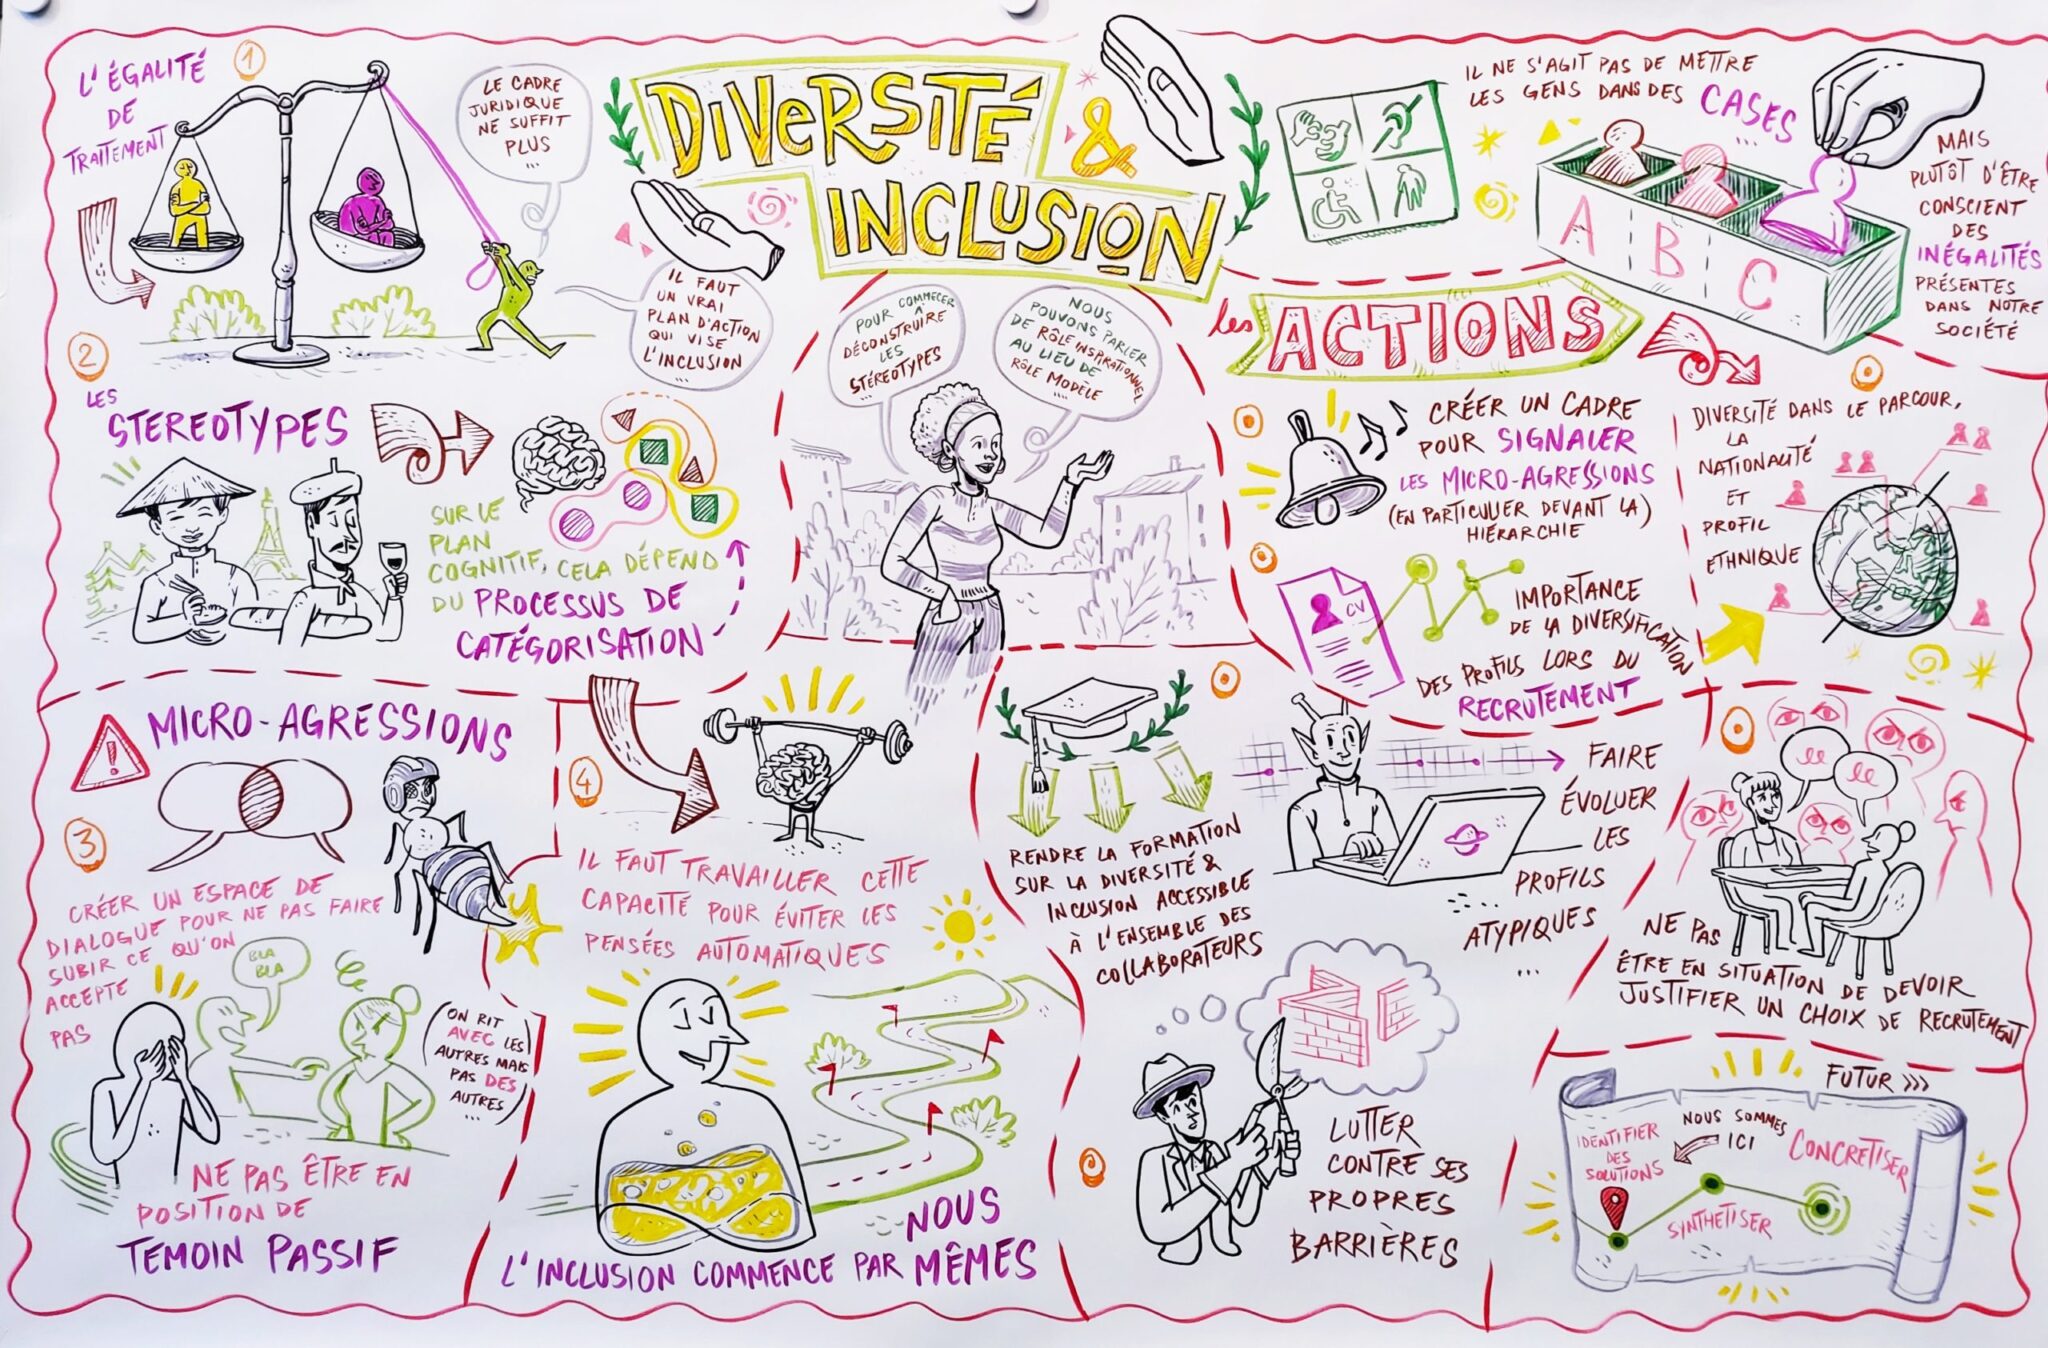 DIVERSITÉ
&
INCLUSION
1
L'ÉGALITÉ
DE
TRAITEMENT
LE CADRE
JURIDIQUE
NE SUFFIT
PLUS
...
IL FAUT
UN VRAI
PLAN D'ACTION
QUI VISE
L'INCLUSION
...
2
LES
STEREOTYPES
SUR LE
PLAN
COGNITIF, CELA DÉPEND
DU PROCESSUS DE
CATÉGORISATION
POUR COMMECER
DÉCONSTRUIRE
LES
STÉRÉOTYPES
NOUS
POUVONS PARLER
DE RÔLE INSPIRATIONNEL
AU LIEU DE
RÔLE MODÈLE
...
MICRO-AGRESSIONS
3
CRÉER UN ESPACE DE
DIALOGUE POUR NE PAS FAIRE
SUBIR CE QU'ON
ACCEPTE
PAS
BLA
BLA
(ON RIT
AVEC LES
AUTRES MAIS
PAS DES
AUTRES
...)
NE PAS ÊTRE EN
POSITION DE
TEMOIN PASSIF
4
IL FAUT TRAVAILLER CETTE
CAPACITÉ POUR ÉVITER LES
PENSÉES AUTOMATIQUES
L'INCLUSION COMMENCE PAR NOUS
MÊMES
IL NE S'AGIT PAS DE METTRE
LES GENS DANS DES CASES
...
A
B
C
MAIS
PLUTÔT D'ÊTRE
CONSCIENT
DES
INÉGALITÉS
PRÉSENTES
DANS NOTRE
SOCIÉTÉ
les ACTIONS
CRÉER UN CADRE
POUR SIGNALER
LES MICRO-AGRESSIONS
(EN PARTICULIER DEVANT LA)
HIÉRARCHIE
CV
IMPORTANCE
DE LA DIVERSIFICATION
DES PROFILS LORS DU
RECRUTEMENT
DIVERSITÉ DANS LE PARCOUR,
LA
NATIONALITÉ
ET
PROFIL
ETHNIQUE
RENDRE LA FORMATION
SUR LA DIVERSITÉ &
INCLUSION ACCESSIBLE
À L'ENSEMBLE DES
COLLABORATEURS
FAIRE
ÉVOLUER
LES
PROFILS
ATYPIQUES
...
NE PAS
ÊTRE EN SITUATION DE DEVOIR
JUSTIFIER UN CHOIX DE RECRUTEMENT
LUTTER
CONTRE SES
PROPRES
BARRIÈRES
FUTUR >>>
IDENTIFIER
DES
SOLUTIONS
NOUS SOMMES
ICI
CONCRETISER
SYNTHETISER